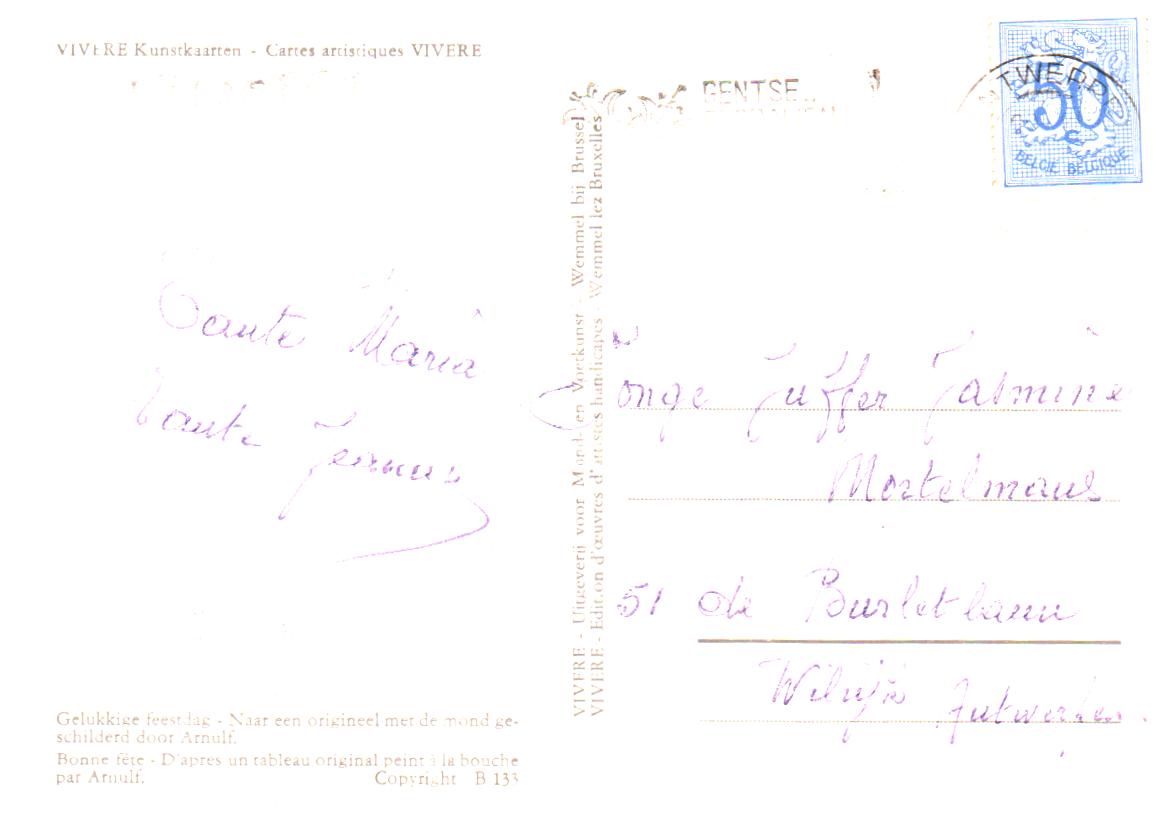 VIVERE Kunstkaarten - Cartes artistiques VIVERE
GENTSE
ANTWERPEN
50 c
BELGIE BELGIQUE
VIVERE - Uitgeverij voor Mond- en Voetkunst - Wemmel bij Brussel
VIVERE - Edition d'œuvres d'artistes handicapés - Wemmel lez Bruxelles
Tante Maria
Tante
Jonge Juffer Jasmine
Mortelmans
51 de Burletlaan
Wilrijk Antwerpen.
Gelukkige feestdag - Naar een origineel met de mond ge-
schilderd door Arnulf.
Bonne fête - D'après un tableau original peint à la bouche
par Arnulf. Copyright B 133